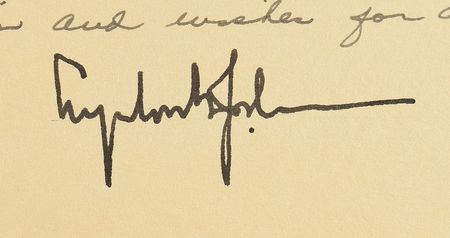 and wishes for
Lyndon B. Johnson